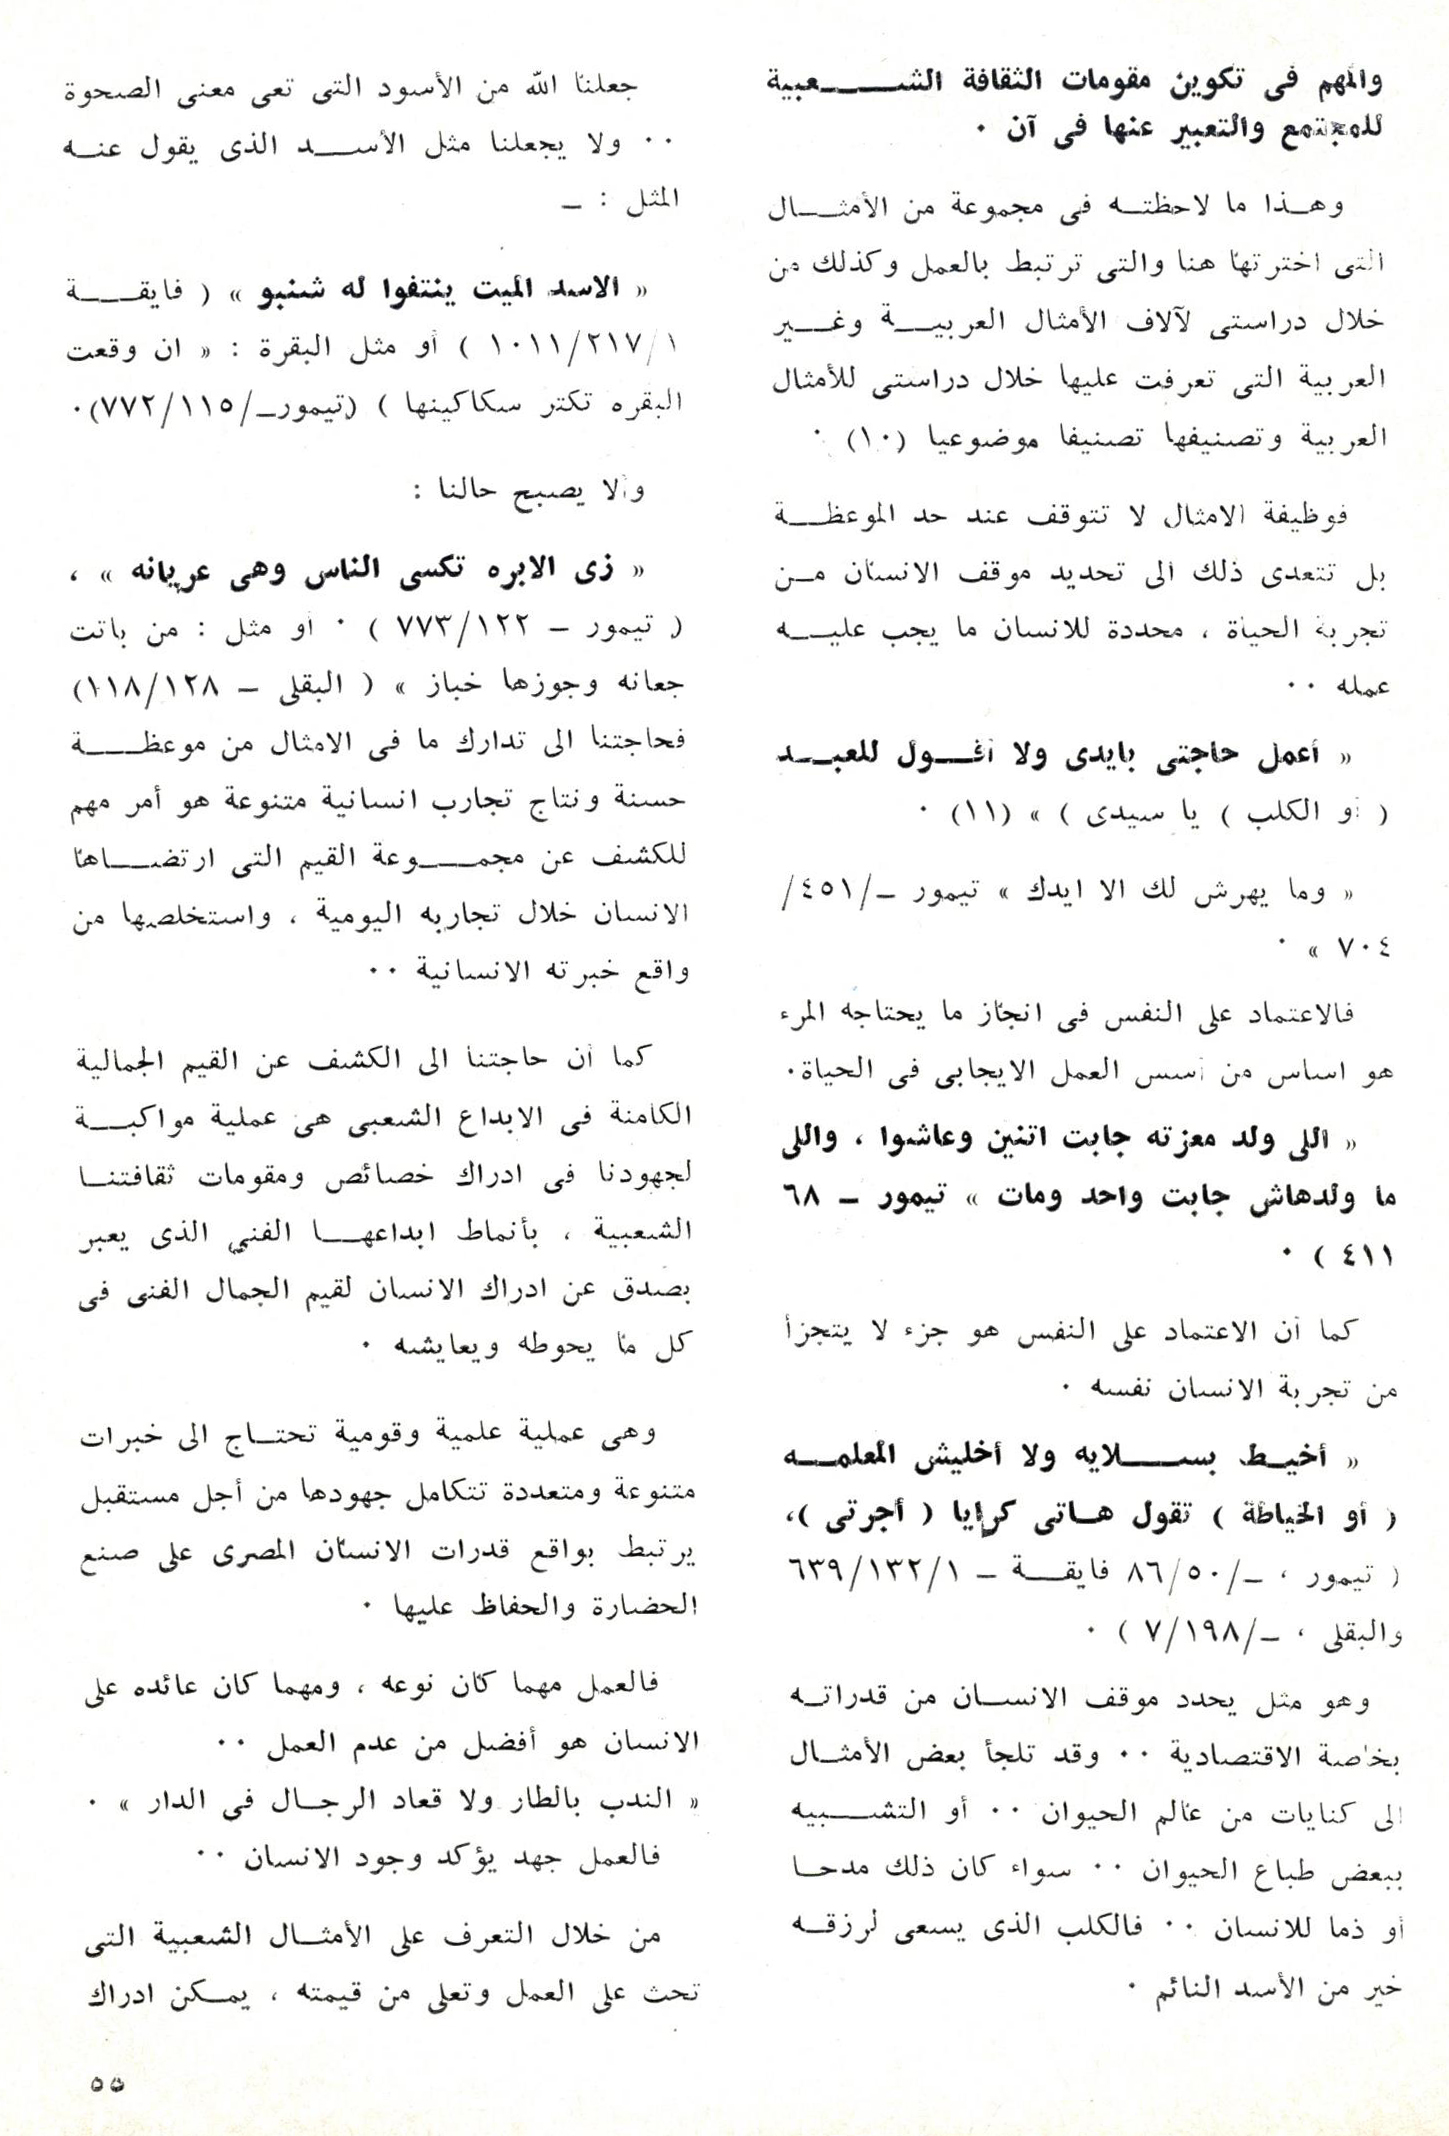 والمهم فى تكوين مقومات الثقافة الشعبية
للمجتمع والتعبير عنها فى آن ٠
وهذا ما لاحظته فى مجموعة من الأمثال
التى اخترتها هنا والتى ترتبط بالعمل وكذلك من
خلال دراستى لآلاف الأمثال العربية وغير
العربية التى تعرفت عليها خلال دراستى للأمثال
العربية وتصنيفها تصنيفا موضوعيا (١٠) ٠
فوظيفة الامثال لا تتوقف عند حد الموعظة
بل تتعدى ذلك الى تحديد موقف الانسان من
تجربة الحياة ، محددة للانسان ما يجب عليه
عمله ٠٠
« أعمل حاجتى بايدى ولا أقول للعبد
( أو الكلب ) يا سيدى ) » (١١) ٠
« وما يهرش لك الا ايدك » تيمور ــ/٤٥١/
٧٠٤ » ٠
فالاعتماد على النفس فى انجاز ما يحتاجه المرء
هو اساس من أسس العمل الايجابى فى الحياة٠
« اللى ولد معزته جابت اتنين وعاشوا ، واللى
ما ولدهاش جابت واحد ومات » تيمور ــ ٦٨
٤١١ ) ٠
كما أن الاعتماد على النفس هو جزء لا يتجزأ
من تجربة الانسان نفسه ٠
« أخيط بسلايه ولا أخليش المعلمه
( أو الخياطة ) تقول هاتى كرايا ( أجرتى )،
( تيمور ، ــ/٨٦/٥٠ فايقة ــ ٦٣٩/١٣٢/١
والبقلى ، ــ/٧/١٩٨ ) ٠
وهو مثل يحدد موقف الانسان من قدراته
بخاصة الاقتصادية ٠٠ وقد تلجأ بعض الأمثال
الى كنايات من عالم الحيوان ٠٠ أو التشبيه
ببعض طباع الحيوان ٠٠ سواء كان ذلك مدحا
أو ذما للانسان ٠٠ فالكلب الذى يسعى لرزقه
خير من الأسد النائم ٠
جعلنا الله من الأسود التى تعى معنى الصحوة
٠٠ ولا يجعلنا مثل الأسد الذى يقول عنه
المثل : ــ
« الاسد الميت ينتفوا له شنبو » ( فايقة
١٠١١/٢١٧/١ ) أو مثل البقرة : « ان وقعت
البقره تكتر سكاكينها ) (تيمورــ/٧٧٢/١١٥)٠
وألا يصبح حالنا :
« زى الابره تكسى الناس وهى عريانه » ،
( تيمور ــ ٧٧٣/١٢٢ ) ٠ أو مثل : من باتت
جعانه وجوزها خباز » ( البقلى ــ ١١٨/١٢٨)
فحاجتنا الى تدارك ما فى الامثال من موعظة
حسنة ونتاج تجارب انسانية متنوعة هو أمر مهم
للكشف عن مجموعة القيم التى ارتضاها
الانسان خلال تجاربه اليومية ، واستخلصها من
واقع خبرته الانسانية ٠٠
كما أن حاجتنا الى الكشف عن القيم الجمالية
الكامنة فى الابداع الشعبى هى عملية مواكبة
لجهودنا فى ادراك خصائص ومقومات ثقافتنا
الشعبية ، بأنماط ابداعها الفنى الذى يعبر
بصدق عن ادراك الانسان لقيم الجمال الفنى فى
كل ما يحوطه ويعايشه ٠
وهى عملية علمية وقومية تحتاج الى خبرات
متنوعة ومتعددة تتكامل جهودها من أجل مستقبل
يرتبط بواقع قدرات الانسان المصرى على صنع
الحضارة والحفاظ عليها ٠
فالعمل مهما كان نوعه ، ومهما كان عائده على
الانسان هو أفضل من عدم العمل ٠٠
« الندب بالطار ولا قعاد الرجال فى الدار » ٠
فالعمل جهد يؤكد وجود الانسان ٠٠
من خلال التعرف على الأمثال الشعبية التى
تحث على العمل وتعلى من قيمته ، يمكن ادراك
٥٥